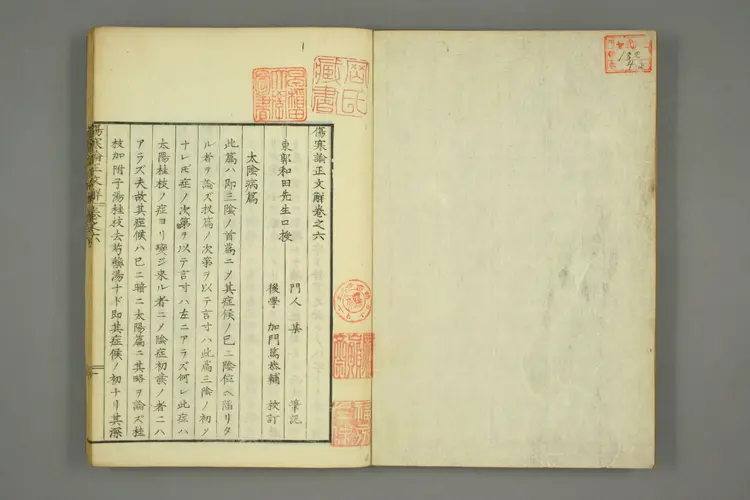 傷寒論正文解卷之六
東郭和田先生口授
門人 某 筆記
後學 加門篤恭輔 挍訂
太陰病篇
此篇ハ即三陰ノ首篇ニ〆其症候ノ已ニ陰位ヘ陥リタ
ル者ヲ論ズ扨篇ノ次第ヲ以テ言寸ハ此篇三陰ノ初ツ
ナレ𪜈症ノ次第ヲ以テ言寸ハ左ニアラズ何レ此症ハ
太陽桂枝ノ症ヨリ変シ来ル者ニ〆陰症初發ノ者ニハ
アラズ夫故其症候ハ已ニ暗ニ太陽篇ニ其略ヲ論ズ桂
枝加附子湯桂枝去芍藥湯ナド即其症候ノ初ナリ其深
傷寒論正文解 卷之六
藏書